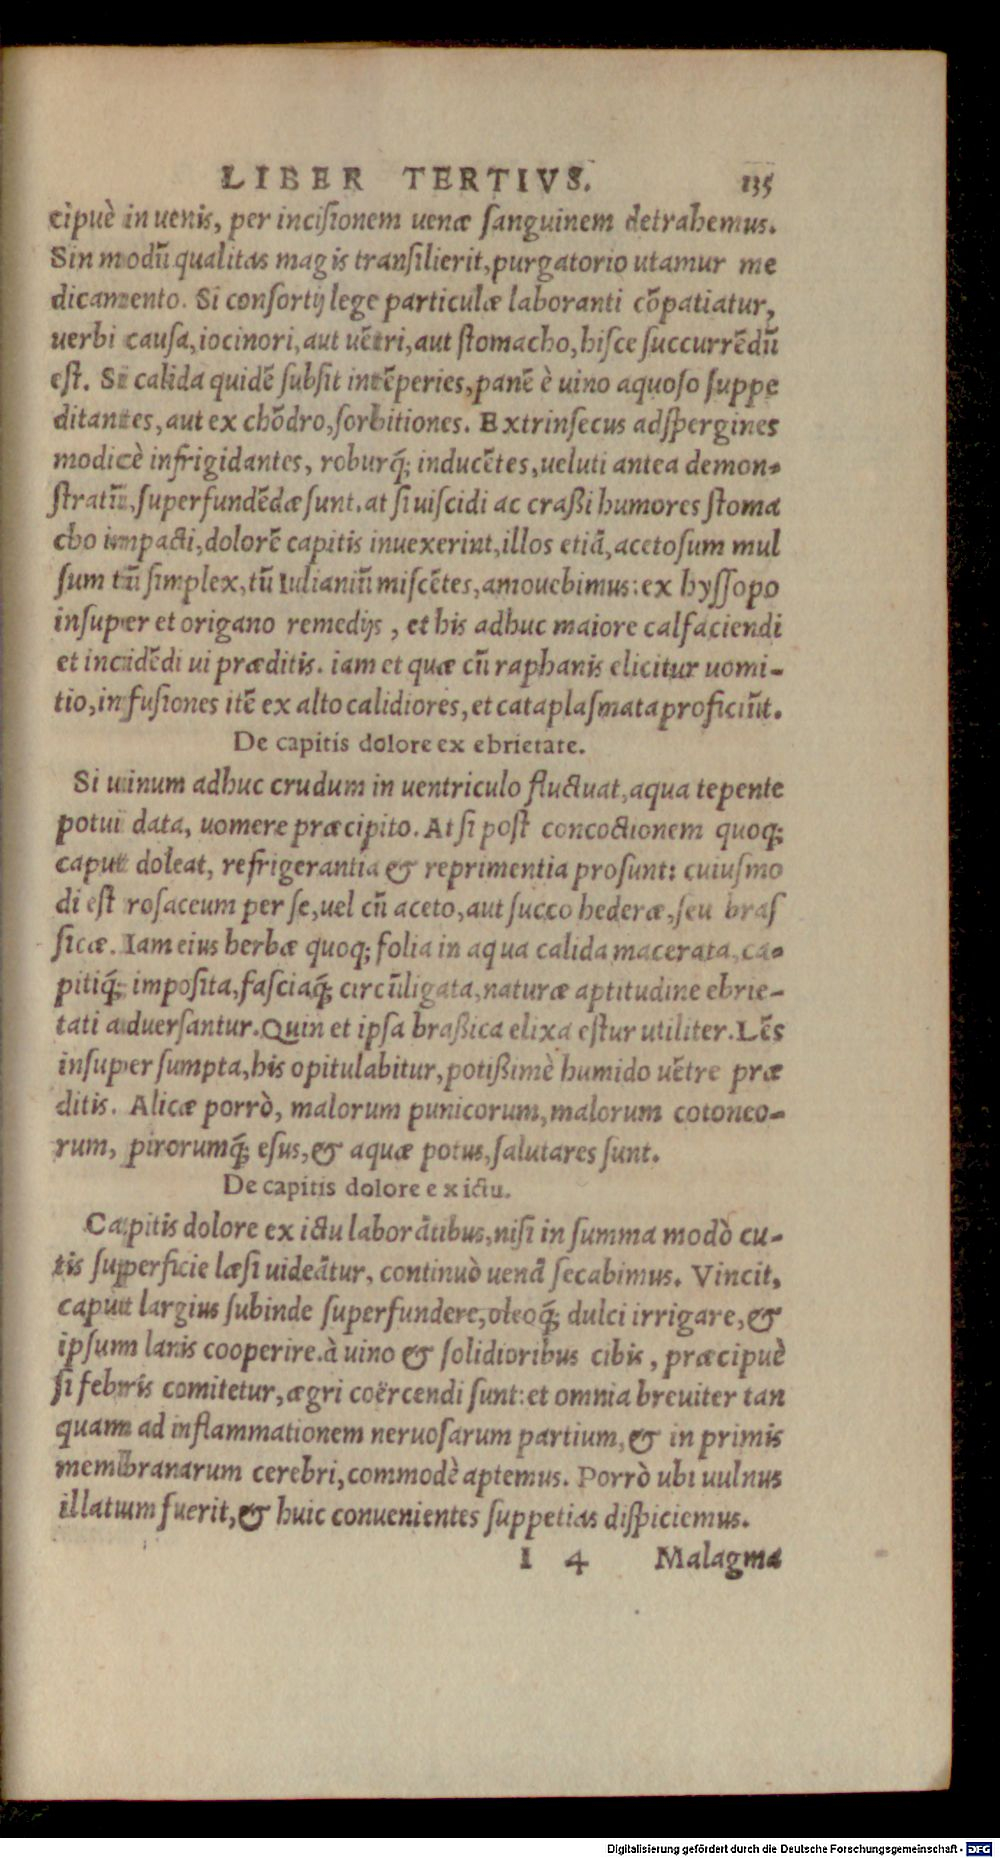 LIBER TERTIVS. 135
cipuè in uenis, per incisionem uenæ ſanguinem detrahemus.
Sin modũ qualitas magis transilierit, purgatorio utamur me
dicamento. Si conſortij lege particulæ laboranti cõpatiatur,
uerbi cauſa, iocinori, aut uẽtri, aut ſtomacho, hiſce ſuccurrẽdũ
eſt. Si calida quidẽ ſubſit intẽperies, panẽ è uino aquoſo ſuppe
ditantes, aut ex chõdro, ſorbitiones. Extrinſecus adſpergines
modicè infrigidantes, roburq́; inducẽtes, ueluti antea demon-
ſtratũ, ſuperfundẽdæ ſunt. at ſi uiſcidi ac craßi humores ſtoma
cho impacti, dolorẽ capitis inuexerint, illos etiã, acetoſum mul
ſum tũ ſimplex, tũ Iulianiũ miſcẽtes, amouebimus: ex hyſſopo
inſuper et origano remedijs, et his adhuc maiore calfaciendi
et incidẽdi ui præditis. iam et quæ cũ raphanis elicitur uomi-
tio, infuſiones itẽ ex alto calidiores, et cataplaſmata proficiũt.
De capitis dolore ex ebrietate.
Si uinum adhuc crudum in uentriculo fluctuat, aqua tepente
potui data, uomere præcipito. At ſi poſt concoctionem quoq;
caput doleat, refrigerantia & reprimentia proſunt: cuiuſmo
di eſt roſaceum per ſe, uel cũ aceto, aut ſucco hederæ, ſeu braſ
ſicæ. Iam eius herbæ quoq; folia in aqua calida macerata, ca-
pitiq́; impoſita, faſciaq́; circũligata, naturæ aptitudine ebrie-
tati aduerſantur. Quin et ipſa braßica elixa eſtur utiliter. Lẽs
inſuper ſumpta, his opitulabitur, potißimè humido uẽtre præ
ditis. Alicæ porrò, malorum punicorum, malorum cotoneo-
rum, pirorumq́; eſus, & aquæ potus, ſalutares ſunt.
De capitis dolore ex ictu.
Capitis dolore ex ictu laborãtibus, niſi in ſumma modò cu-
tis ſuperficie læſi uideãtur, continuò uenã ſecabimus. Vincit,
caput largius ſubinde ſuperfundere, oleoq́; dulci irrigare, &
ipſum lanis cooperire. à uino & ſolidioribus cibis, præcipuè
ſi febris comitetur, ægri coërcendi ſunt: et omnia breuiter tan
quam ad inflammationem neruoſarum partium, & in primis
membranarum cerebri, commodè aptemus. Porrò ubi uulnus
illatum fuerit, & huic conuenientes ſuppetias diſpiciemus.
I 4 Malagma
Digitalisierung gefördert durch die Deutsche Forschungsgemeinschaft - DFG